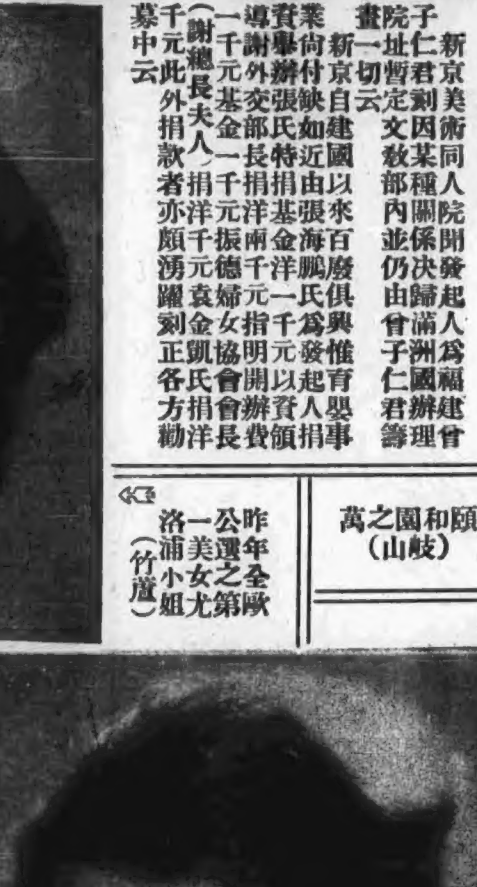 新京美術同人院聞發起人爲福建曾
子仁君刻因某種關係决歸滿洲國辦理
院址暫定文敎部內並仍由曾子仁君籌
畫一切云
新京自建國以來百廢俱興惟育嬰事
業尙付缺如近由張海鵬氏爲發起人捐
資舉辦張氏特捐基金洋一千元以資領
導謝外交部長捐洋兩千元指明開辦費
一千元基金一千元振德婦女協會會長
(謝總長夫人)捐洋千元袁金凱氏捐洋
千元此外捐款者亦頗湧躍刻正各方勸
募中云
頤和園之萬
(山岐)
昨年全歐
公選之第
一美女尤
洛浦小姐
(竹蘆)